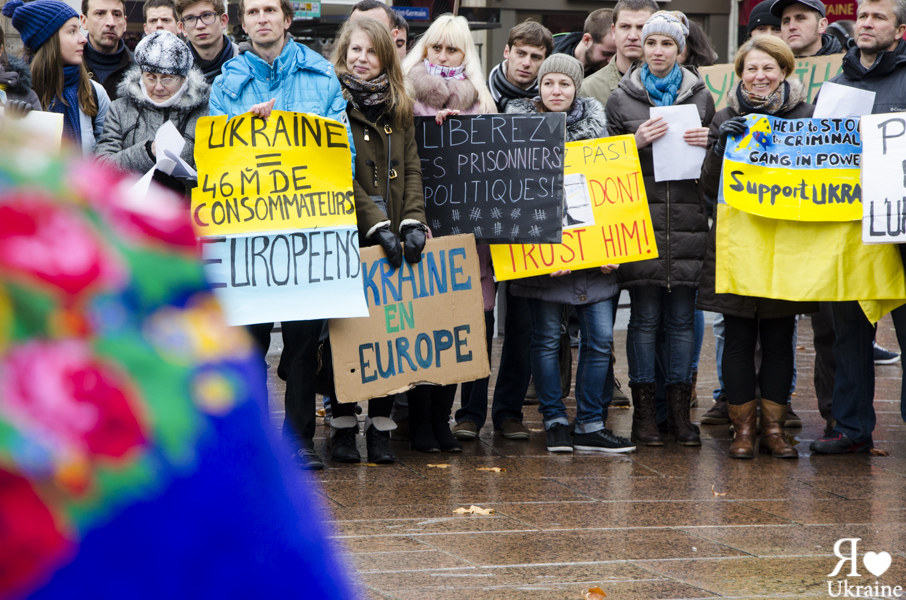 UKRAINE
=
46 M DE
CONSOMMATEURS
EUROPÉENS
LIBÉREZ
PRISONNIERS
POLITIQUES!
# # # # #
UKRAINE
EN
EUROPE
PAS!
DONT
TRUST HIM!
HELP TO STOP
CRIMINAL
GANG IN POWER
Support UKRA
Я
Ukraine